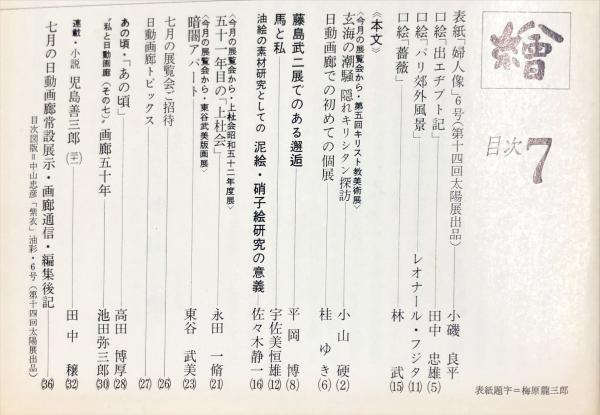 繪
目次 7
表紙題字＝梅原龍三郎
表紙「婦人像」6号(第十四回太陽展出品) 小磯 良平
口絵「出エヂプト記」 田中 忠雄(5)
口絵「パリ郊外風景」 レオナール・フジタ(11)
口絵「薔薇」 林 武(15)
《本文》
〈今月の展覧会から・第五回キリスト教美術展〉
玄海の潮騒 隠れキリシタン探訪 小山 硬(2)
日動画廊での初めての個展 桂 ゆき(6)
藤島武二展でのある邂逅 平岡 博(8)
馬と私 宇佐美恒雄(12)
油絵の素材研究としての 泥絵・硝子絵研究の意義 佐々木静一(16)
〈今月の展覧会から・上杜会昭和五十二年度展〉
五十一年目の「上杜会」 永田 一脩(21)
〈今月の展覧会から・東谷武美版画展〉
暗闇アパート 東谷 武美(23)
七月の展覧会ご招待 (26)
日動画廊トピックス (27)
あの頃・「あの頃」 高田 博厚(28)
〝私と日動画廊〈その七〉〟画廊五十年 池田弥三郎(30)
連載・小説 児島善三郎(三十一) 田中 穣(32)
七月の日動画廊常設展示・画廊通信・編集後記 (36)
目次図版＝中山忠彦「紫衣」油彩・6号(第十四回太陽展出品)